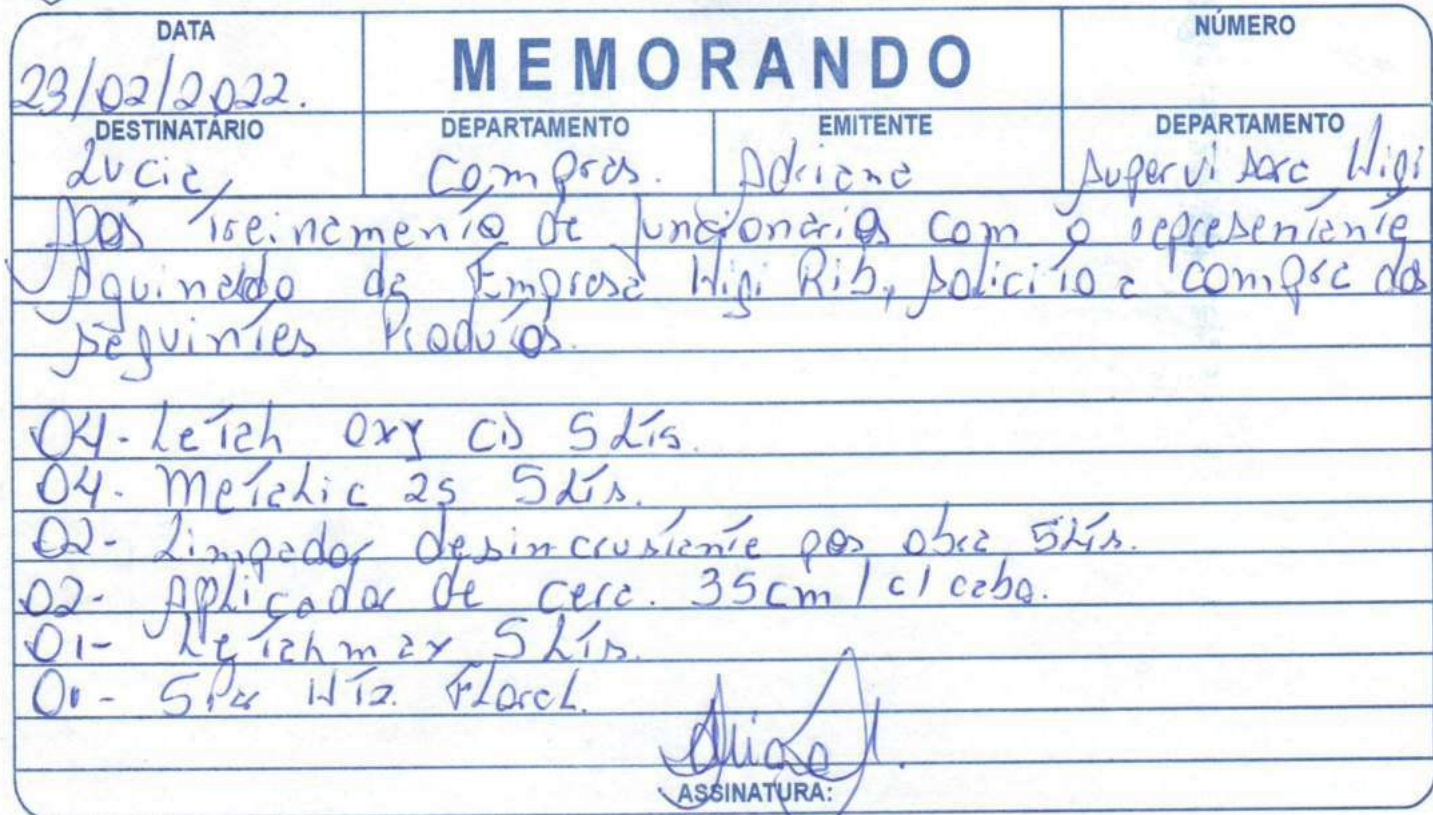 DATA
MEMORANDO
NÚMERO
23/02/2022.
DESTINATÁRIO
DEPARTAMENTO
EMITENTE
DEPARTAMENTO
Lucia,
Compras.
Adriana
Supervisora Higi
Após treinamento de funcionarios com o representante
Aguinaldo da Empresa Higi Rib, solicito a compra dos
seguintes Produtos.
04- Letah oxy 5 Lts.
04- Metalic 25 5 Lts.
02- Limpador desincrustante pos obra 5Lts.
02- Aplicador de cera. 35cm / c/ cabo.
01- Letahmax 5 Lts.
01- Floral.
ASSINATURA: